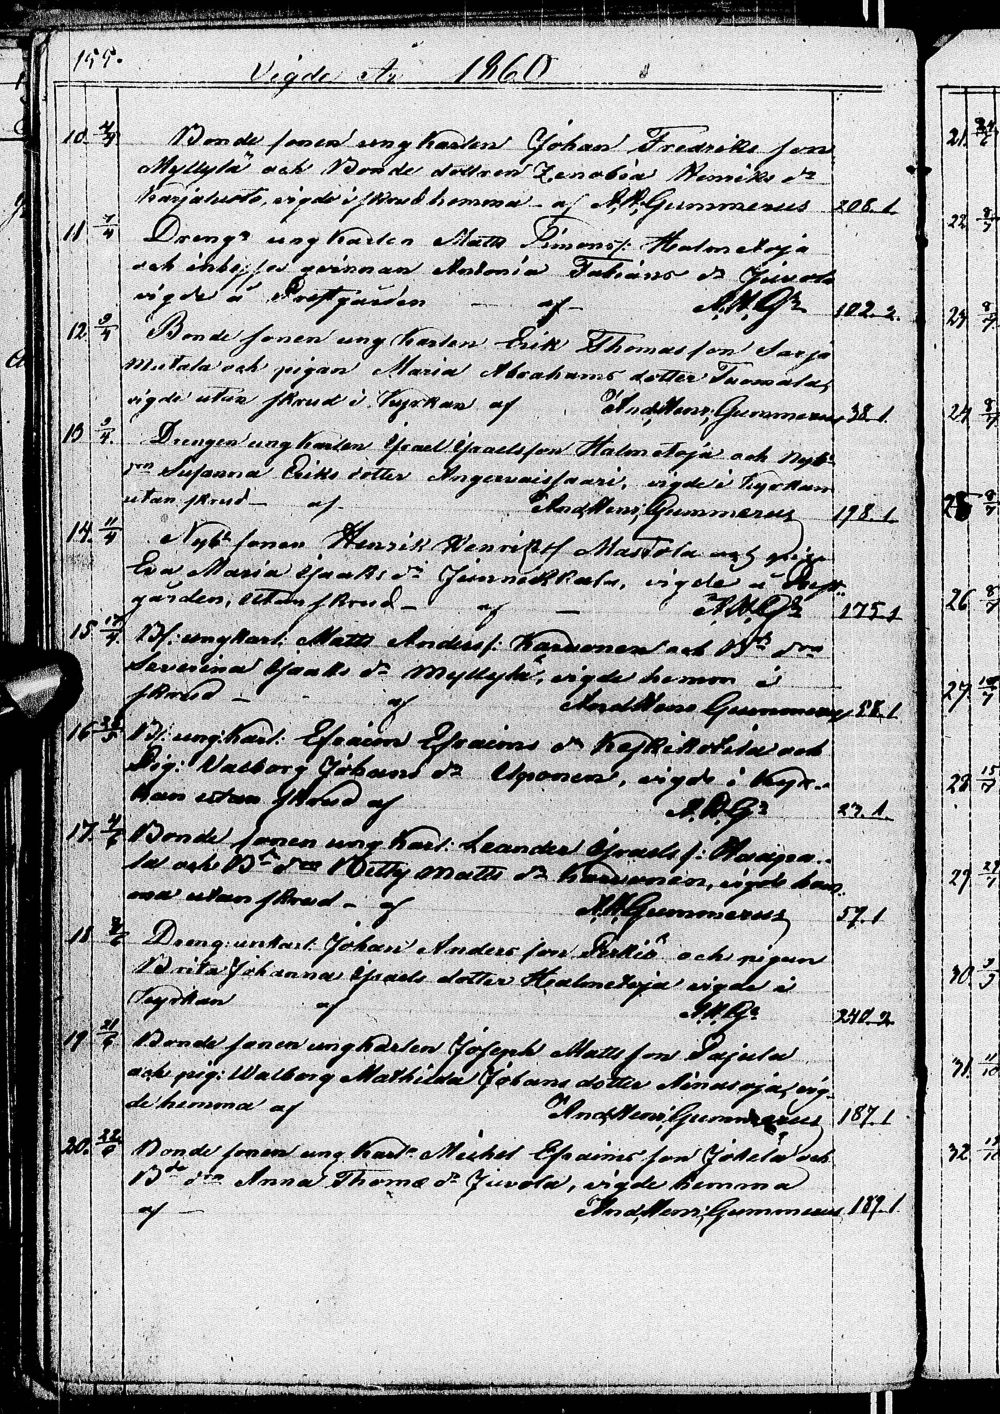 155.
Vigde År 1860
10. 4/4 Bonde sonen ungkarlen Johan Fredriks son
Myllylä och Bonde dottren Zenobia Henriks dr
Karjaluoto, vigde i skrud hemma - af A.H. Gummerus 208.1
11 7/4 Drengn ungkarlen Matts Simons s: Halmetoja
och inhysses qvinnan Antonia Fabians dr Juvola
vigde å Prestgården - af - A.H.Grs 102.2.
12 9/4 Bonde sonen ungkarlen Erik Thomas son Sarja
mutala och pigan Maria Abrahams dotter Tuomala,
vigde utan skrud i Kyrkan af And. Henr. Gummerus 38.1
13 9/4. Drengen ungkarlen Israel Israelsson Halmetoja och Nybr
Susanna Eriks dotter Angervaissaari, vigde i Kyrkan
utan skrud - af - And. Henr. Gummerus 198.1
14. 11/4 Nybs sonen Henrik Henriks s Mastola och pigan
Eva Maria Isaaks dr Junnikkala, vigde å Prest-
gården, utan skrud - af - A.H.Grs 175.1
15 Bs: ungkarl: Matts Anders s: Karvonen och Bde drn
Severina Isaaks dr Myllylä, vigde hemma i
skrud - af And Henr Gummerus 88.1
16 Bs: ungkarl: Efraim Efraims Keskikotila och
Pig: Valborg Johans dr Uponen, vigde i Kyr-
kan utan skrud af A.H.Grs 23.1.
17. 4/6 Bonde sonen ungkarl: Leander Israels s: Haapa-
la och Bde drn Betty Matts dr Karvonen, vigde hem
ma utan skrud - af A.H. Gummerus 57.1
18 Dreng: unkarl: Johan Anders son Perkiö och pigan
Brita Johanna Israels dotter Halmetoja vigde i
Kyrkan af A.H.Grs 240.2
19 21/6 Bonde sonen ungkarlen Joseph Matts son Pajula
och pig: Walborg Mathilda Johans dotter Ainasoja, vig-
de hemma af And. Henr. Gummerus 187.1
20. 22/6 Bonde sonen ungkarln Michel Efraims son Jokela och
Bde drn Anna Thomæ dr Juvola, vigde hemma
af - And. Henr. Gummerus 189.1
21.
22.
27.
29.
30.
31.
32.